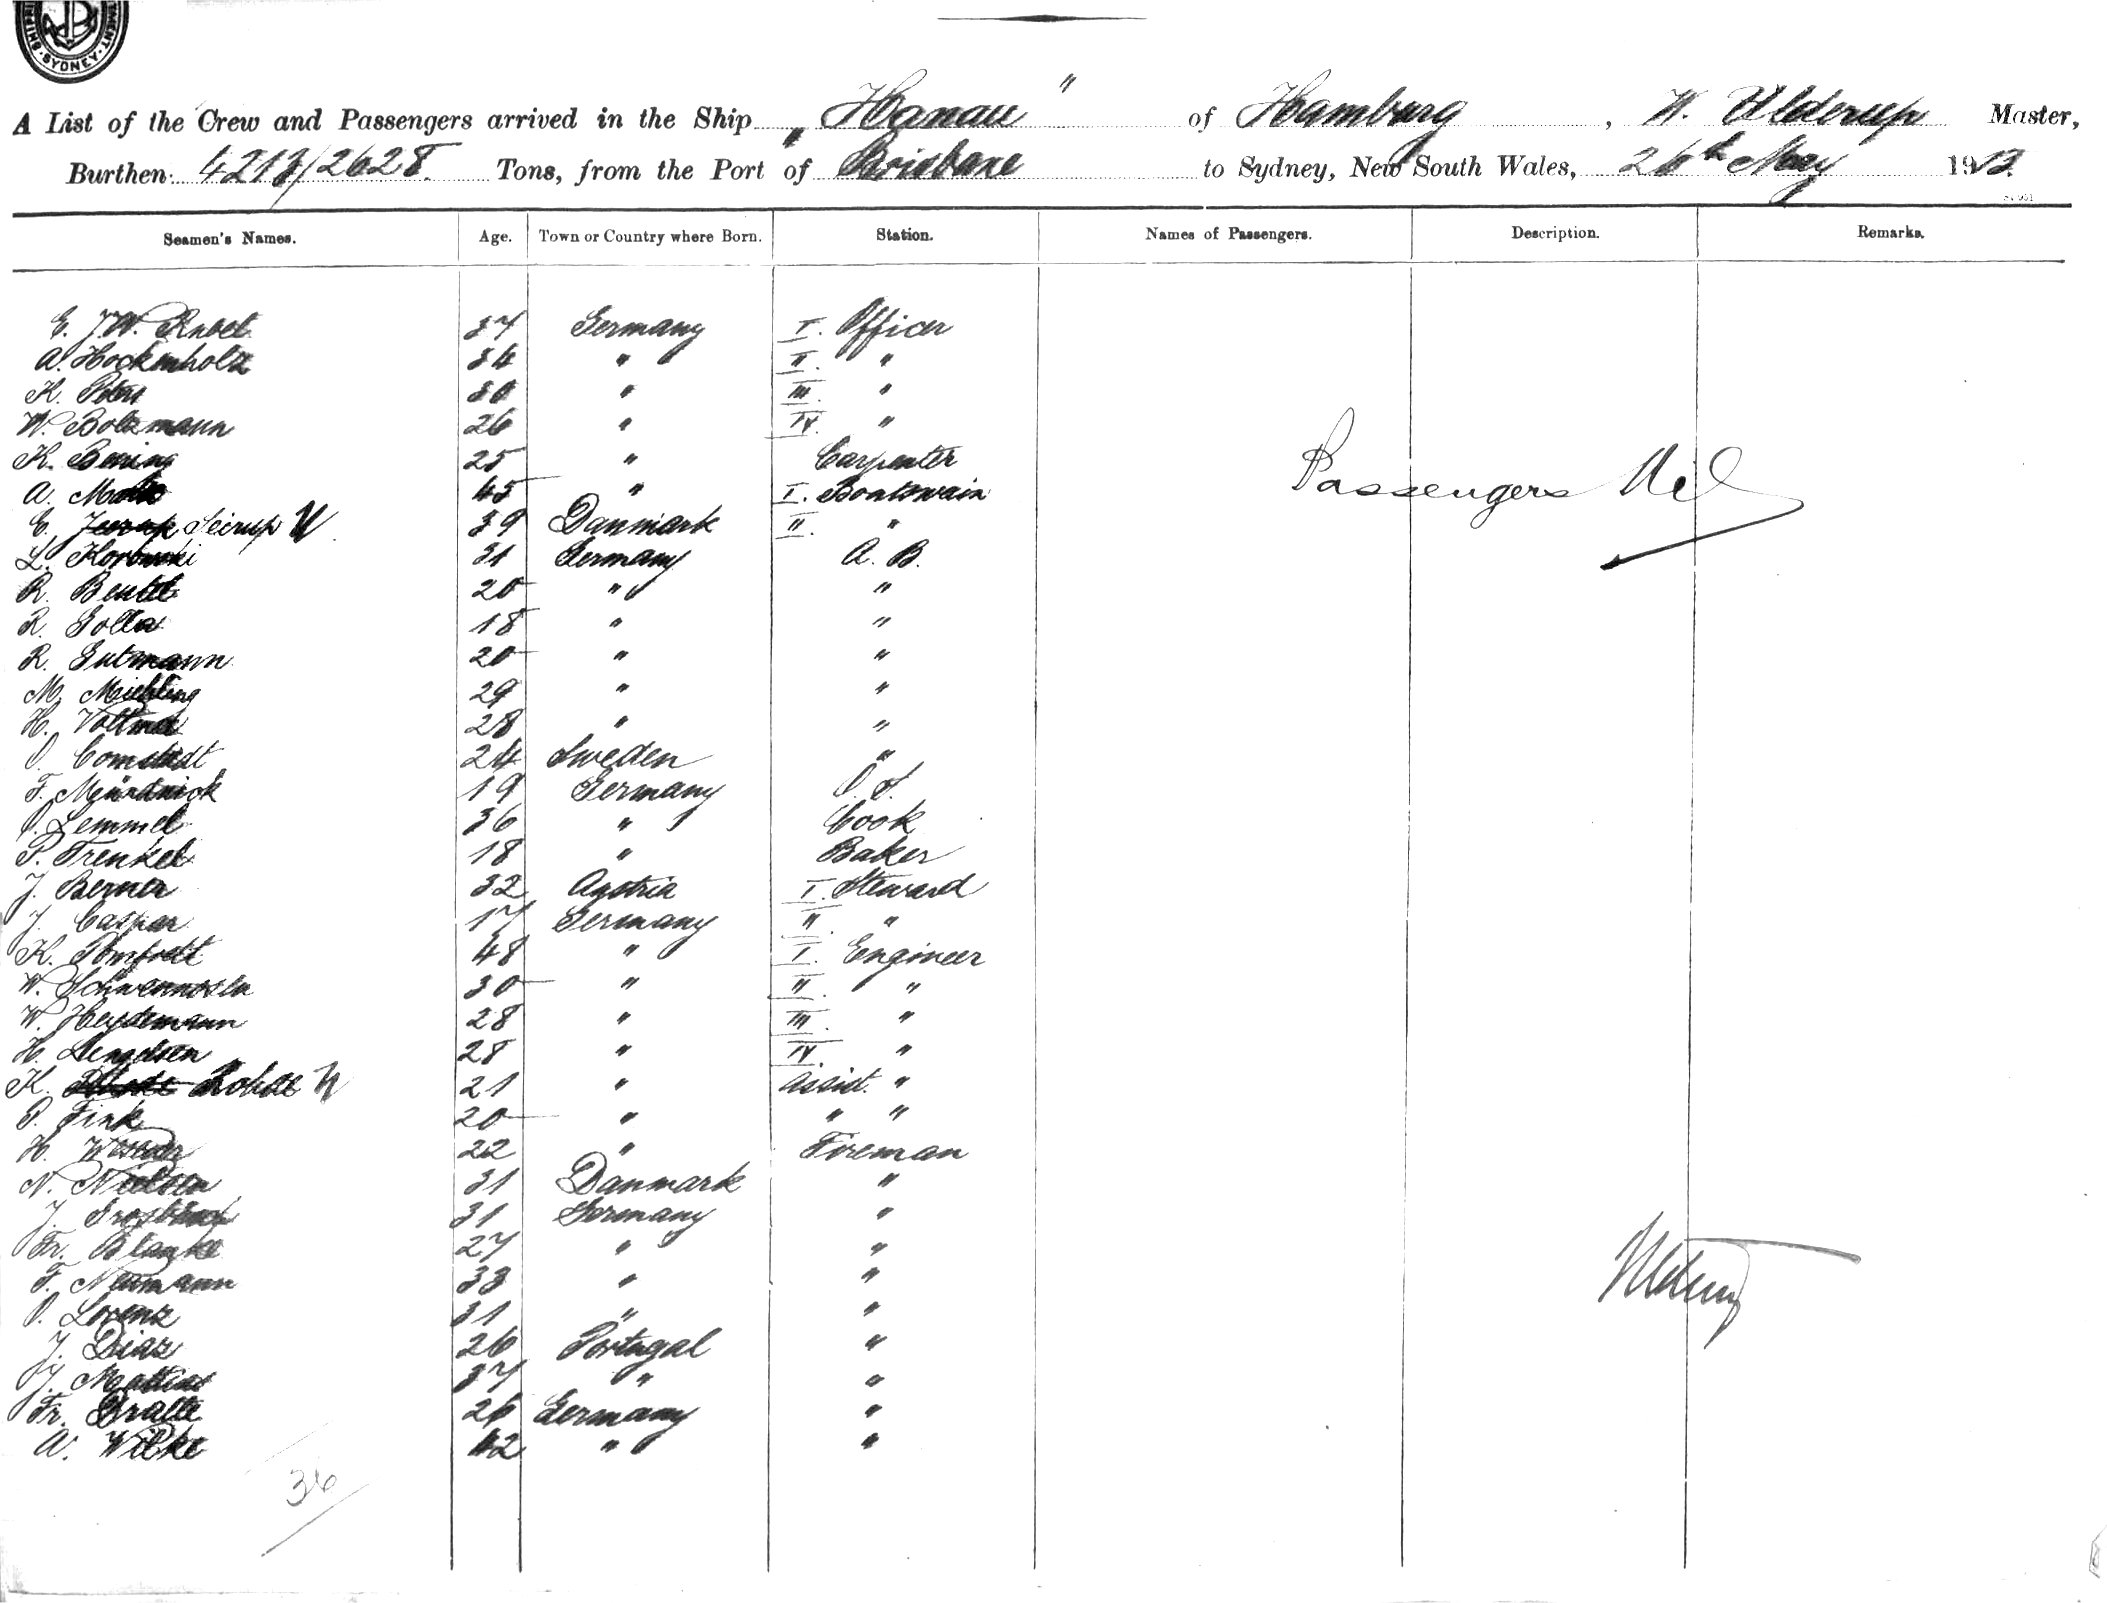 SYDNEY
A List of the Crew and Passengers arrived in the Ship „Hanau" of Hamburg, W. Ulderup Master,
Burthen 4213/2628. Tons, from the Port of Brisbane to Sydney, New South Wales, 26th May 1913.
Seamen's Names. Age. Town or Country where Born. Station. Names of Passengers. Description. Remarks.
E. J.W. 37 Germany I. Officer
A. Hockenholz 34 " II. "
K. Peters 30 " III. "
W. Bolzmann 26 " IV. "
K. Bening 25 " Carpenter
A. 45 " I. Boatswain
E. Seirup 39 Danmark II. "
L. 31 Germany A. B.
R. Beutel 20 " "
R. Golla 18 " "
R. Gutmann 20 " "
M. Miehling 29 " "
H. Voltmer 28 " "
O. Comstedt 24 Sweden "
F. 19 Germany O. S.
O. Lemmel 36 " Cook
P. Trenkel 18 " Baker
J. Berner 32 Austria I. Steward
J. Caspar 17 Germany II. "
K. 48 " I. Engineer
W. 30 " II. "
W. Heydemann 28 " III. "
H. 28 " IV. "
K. Rohde 21 " Assist. "
P. Fink 20 " " "
H. 22 " Fireman
N. Nielsen 31 Danmark "
J. 31 Germany "
Fr. Blanke 27 " "
F. Neumann 33 " "
O. Lorenz 31 " "
J. Diaz 26 Portugal "
J. Mattias 37 " "
Fr. Bralle 26 Germany "
A. Wilke 42 " "
Passengers Nil
36